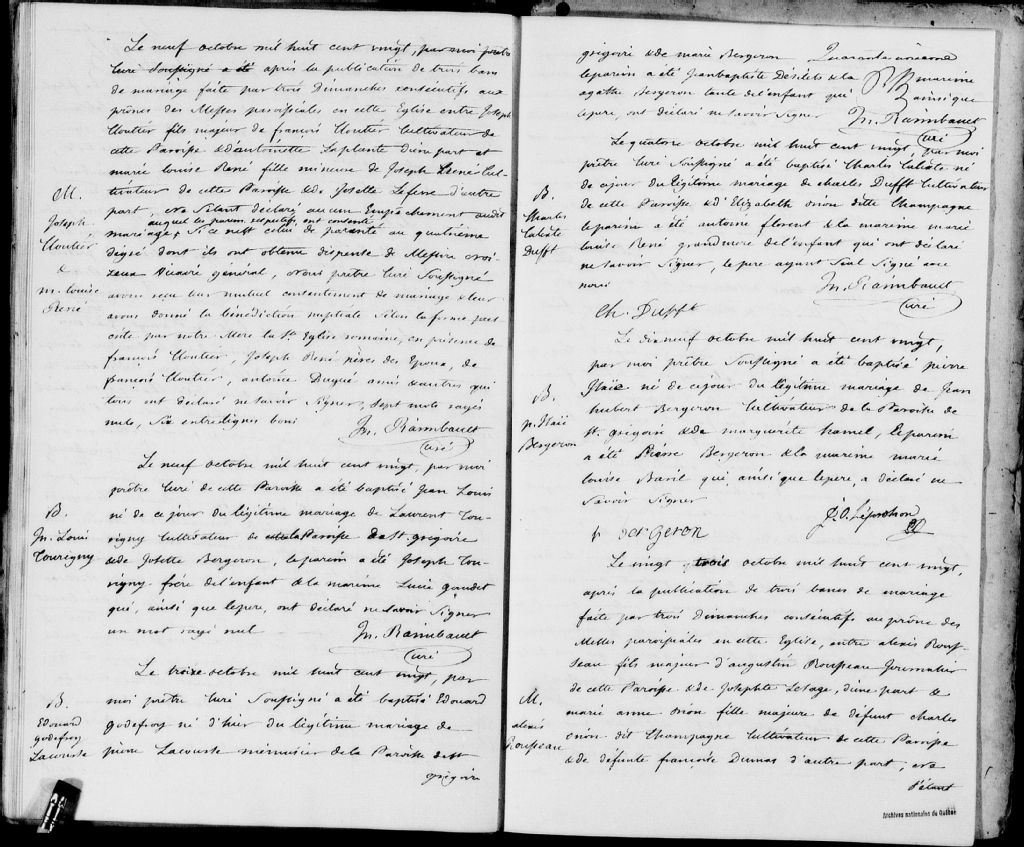 Le neuf octobre mil huit cent vingt, par moi prêtre
Curé Soussigné a été après la publication de trois bans
de mariage faite par trois Dimanches consécutifs aux
prônes des Messes paroissiales en cette Eglise entre Joseph
Cloutier fils majeur de françois Cloutier Cultivateur de
cette Paroisse & d'antoinette Laplante d'une part et
marie louise René fille mineure de Joseph René Cul-
tivateur de cette Paroisse & de Josette Lefevre d'autre
part, ne s'étant déclaré aucun Empêchement audit
auquel les parens respectifs ont consenti
mariage, Si ce n'est celui de parenté au quatrième
degré dont ils ont obtenu dispense de Messire
Vicaire général, Nous prêtre Curé Soussigné
avons reçu leur mutuel consentement de mariage & leur
avons donné la bénédiction nuptiale Selon la forme pres
crite par notre Mere la Ste Eglise romaine, en présence de
françois Cloutier, Joseph René pères des Epoux, de
françois Cloutier, antoine Dugué amis & autres qui
tous ont déclaré ne savoir Signer, Sept mots rayés
nuls, Six entrelignes bons
Jn. Raimbault
Curé
M.
Joseph
Cloutier
&
m. louise
René
Le neuf octobre mil huit cent vingt, par moi
prêtre Curé de cette Paroisse a été baptisé Jean Louis
né de ce jour du légitime mariage de Laurent Tou-
rigny Cultivateur de la Paroisse de St. grégoire
& de Josette Bergeron, le parain a été Joseph Tou-
rigny frère de l'enfant & la maraine Lucie gaudet
qui, ainsi que le pere, ont déclaré ne savoir Signer
un mot rayé nul
Jn. Raimbault
Curé
B.
Jn. Louis
Tourigny
Le treize octobre mil huit cent vingt, par
moi prêtre Curé Soussigné a été baptisé Edouard
godefroy né d'hier du légitime mariage de
pierre Lacourse ménuisier de la Paroisse de St
grégoire
B.
Edouard
godefroy
Lacourse
grégoire & de marie Bergeron Quarante
le parain a été Jean baptiste Désilets & la maraine
agathe Bergeron tante de l'enfant qui ainsi que
le pere, ont déclaré ne savoir Signer
Jn. Raimbault
Curé
Le quatorze octobre mil huit cent vingt par moi
prêtre Curé Soussigné a été baptisé Charles Calixte né
de ce jour du légitime mariage de charles Dufft Cultivateur
de cette Paroisse & d'Elizabeth orion ditte Champagne
le parain a été antoine florent & la maraine marie
louise René grandmere de l'enfant qui ont déclaré
ne savoir Signer, le pere ayant Seul Signé avec
nous
Jn. Raimbault
Curé
Ch. Dufft
B.
Charles
Calixte
Dufft
Le dix neuf octobre mil huit cent vingt,
par moi prêtre Soussigné a été baptisé pierre
Itaïe né de ce jour du légitime mariage de Jean
hubert Bergeron Cultivateur de la Paroisse de
St. grégoire & de marguerite hamel, le parain
a été Pierre Bergeron & la maraine marie
louise Baril qui ainsi que le pere, a déclaré ne
Savoir Signer
Bergeron
B.
p. Itaïe
Bergeron
Le vingt trois octobre mil huit cent vingt,
après la publication de trois bans de mariage
faite par trois Dimanches consécutifs au prône des
Messes paroissiales en cette Eglise, entre alexis Rous-
seau fils majeur d'augustin Rousseau Journalier
de cette Paroisse & de Josephte Lesage, d'une part &
marie anne orion fille majeure de défunt charles
orion dit Champagne Cultivateur de cette Paroisse
& de défunte françoise Dumas d'autre part, ne
s'étant
M.
alexis
Rousseau
Archives nationales du Québec